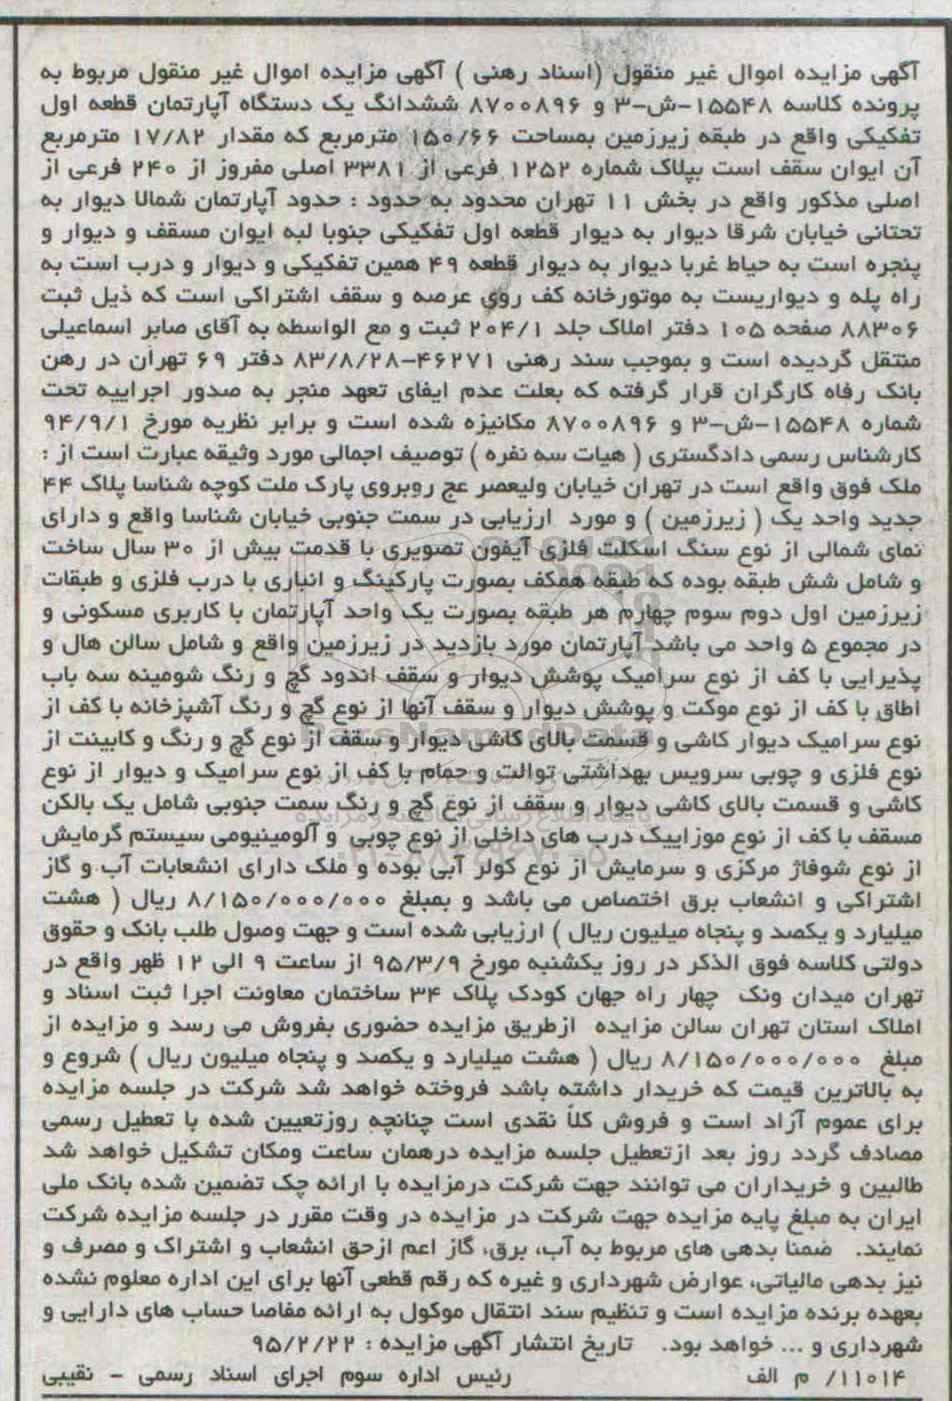 آگهی مزایده اموال غیر منقول (اسناد رهنی ) آگهی مزایده اموال غیر منقول مربوط به
پرونده کلاسه ۱۵۵۴۸-ش-۳ و ۸۷۰۰۸۹۶ ششدانگ یک دستگاه آپارتمان قطعه اول
تفکیکی واقع در طبقه زیرزمین بمساحت ۱۵۰/۶۶ مترمربع که مقدار ۱۷/۸۲ مترمربع
آن ایوان سقف است بپلاک شماره ۱۲۵۲ فرعی از ۳۳۸۱ اصلی مفروز از ۲۴۰ فرعی از
اصلی مذکور واقع در بخش ۱۱ تهران محدود به حدود : حدود آپارتمان شمالا دیوار به
تحتانی خیابان شرقا دیوار به دیوار قطعه اول تفکیکی جنوبا لبه ایوان مسقف و دیوار و
پنجره است به حیاط غربا دیوار به دیوار قطعه ۴۹ همین تفکیکی و دیوار و درب است به
راه پله و دیواریست به موتورخانه کف روی عرصه و سقف اشتراکی است که ذیل ثبت
۸۸۳۰۶ صفحه ۱۰۵ دفتر املاک جلد ۲۰۴/۱ ثبت و مع الواسطه به آقای صابر اسماعیلی
منتقل گردیده است و بموجب سند رهنی ۴۶۲۷۱-۸۳/۸/۲۸ دفتر ۶۹ تهران در رهن
بانک رفاه کارگران قرار گرفته که بعلت عدم ایفای تعهد منجر به صدور اجراییه تحت
شماره ۱۵۵۴۸-ش-۳ و ۸۷۰۰۸۹۶ مکانیزه شده است و برابر نظریه مورخ ۹۴/۹/۱
کارشناس رسمی دادگستری ( هیات سه نفره ) توصیف اجمالی مورد وثیقه عبارت است از :
ملک فوق واقع است در تهران خیابان ولیعصر عج روبروی پارک ملت کوچه شناسا پلاک ۴۴
جدید واحد یک ( زیرزمین ) و مورد ارزیابی در سمت جنوبی خیابان شناسا واقع و دارای
نمای شمالی از نوع سنگ اسکلت فلزی آیفون تصویری با قدمت بیش از ۳۰ سال ساخت
و شامل شش طبقه بوده که طبقه همکف بصورت پارکینگ و انباری با درب فلزی و طبقات
زیرزمین اول دوم سوم چهارم هر طبقه بصورت یک واحد آپارتمان با کاربری مسکونی و
در مجموع ۵ واحد می باشد آپارتمان مورد بازدید در زیرزمین واقع و شامل سالن هال و
پذیرایی با کف از نوع سرامیک پوشش دیوار و سقف اندود گچ و رنگ شومینه سه باب
اطاق با کف از نوع موکت و پوشش دیوار و سقف آنها از نوع گچ و رنگ آشپزخانه با کف از
نوع سرامیک دیوار کاشی و قسمت بالای کاشی دیوار و سقف از نوع گچ و رنگ و کابینت از
نوع فلزی و چوبی سرویس بهداشتی توالت و حمام با کف از نوع سرامیک و دیوار از نوع
کاشی و قسمت بالای کاشی دیوار و سقف از نوع گچ و رنگ سمت جنوبی شامل یک بالکن
مسقف با کف از نوع موزاییک درب های داخلی از نوع چوبی و آلومینیومی سیستم گرمایش
از نوع شوفاژ مرکزی و سرمایش از نوع کولر آبی بوده و ملک دارای انشعابات آب و گاز
اشتراکی و انشعاب برق اختصاص می باشد و بمبلغ ۸/۱۵۰/۰۰۰/۰۰۰ ریال ( هشت
میلیارد و یکصد و پنجاه میلیون ریال ) ارزیابی شده است و جهت وصول طلب بانک و حقوق
دولتی کلاسه فوق الذکر در روز یکشنبه مورخ ۹۵/۳/۹ از ساعت ۹ الی ۱۲ ظهر واقع در
تهران میدان ونک چهار راه جهان کودک پلاک ۳۴ ساختمان معاونت اجرا ثبت اسناد و
املاک استان تهران سالن مزایده ازطریق مزایده حضوری بفروش می رسد و مزایده از
مبلغ ۸/۱۵۰/۰۰۰/۰۰۰ ریال ( هشت میلیارد و یکصد و پنجاه میلیون ریال ) شروع و
به بالاترین قیمت که خریدار داشته باشد فروخته خواهد شد شرکت در جلسه مزایده
برای عموم آزاد است و فروش کلاً نقدی است چنانچه روزتعیین شده با تعطیل رسمی
مصادف گردد روز بعد ازتعطیل جلسه مزایده درهمان ساعت ومکان تشکیل خواهد شد
طالبین و خریداران می توانند جهت شرکت درمزایده با ارائه چک تضمین شده بانک ملی
ایران به مبلغ پایه مزایده جهت شرکت در مزایده در وقت مقرر در جلسه مزایده شرکت
نمایند. ضمنا بدهی های مربوط به آب، برق، گاز اعم ازحق انشعاب و اشتراک و مصرف و
نیز بدهی مالیاتی، عوارض شهرداری و غیره که رقم قطعی آنها برای این اداره معلوم نشده
بعهده برنده مزایده است و تنظیم سند انتقال موکول به ارائه مفاصا حساب های دارایی و
شهرداری و ... خواهد بود. تاریخ انتشار آگهی مزایده : ۹۵/۲/۲۲
۱۱۰۱۴/ م الف رئیس اداره سوم اجرای اسناد رسمی - نقیبی